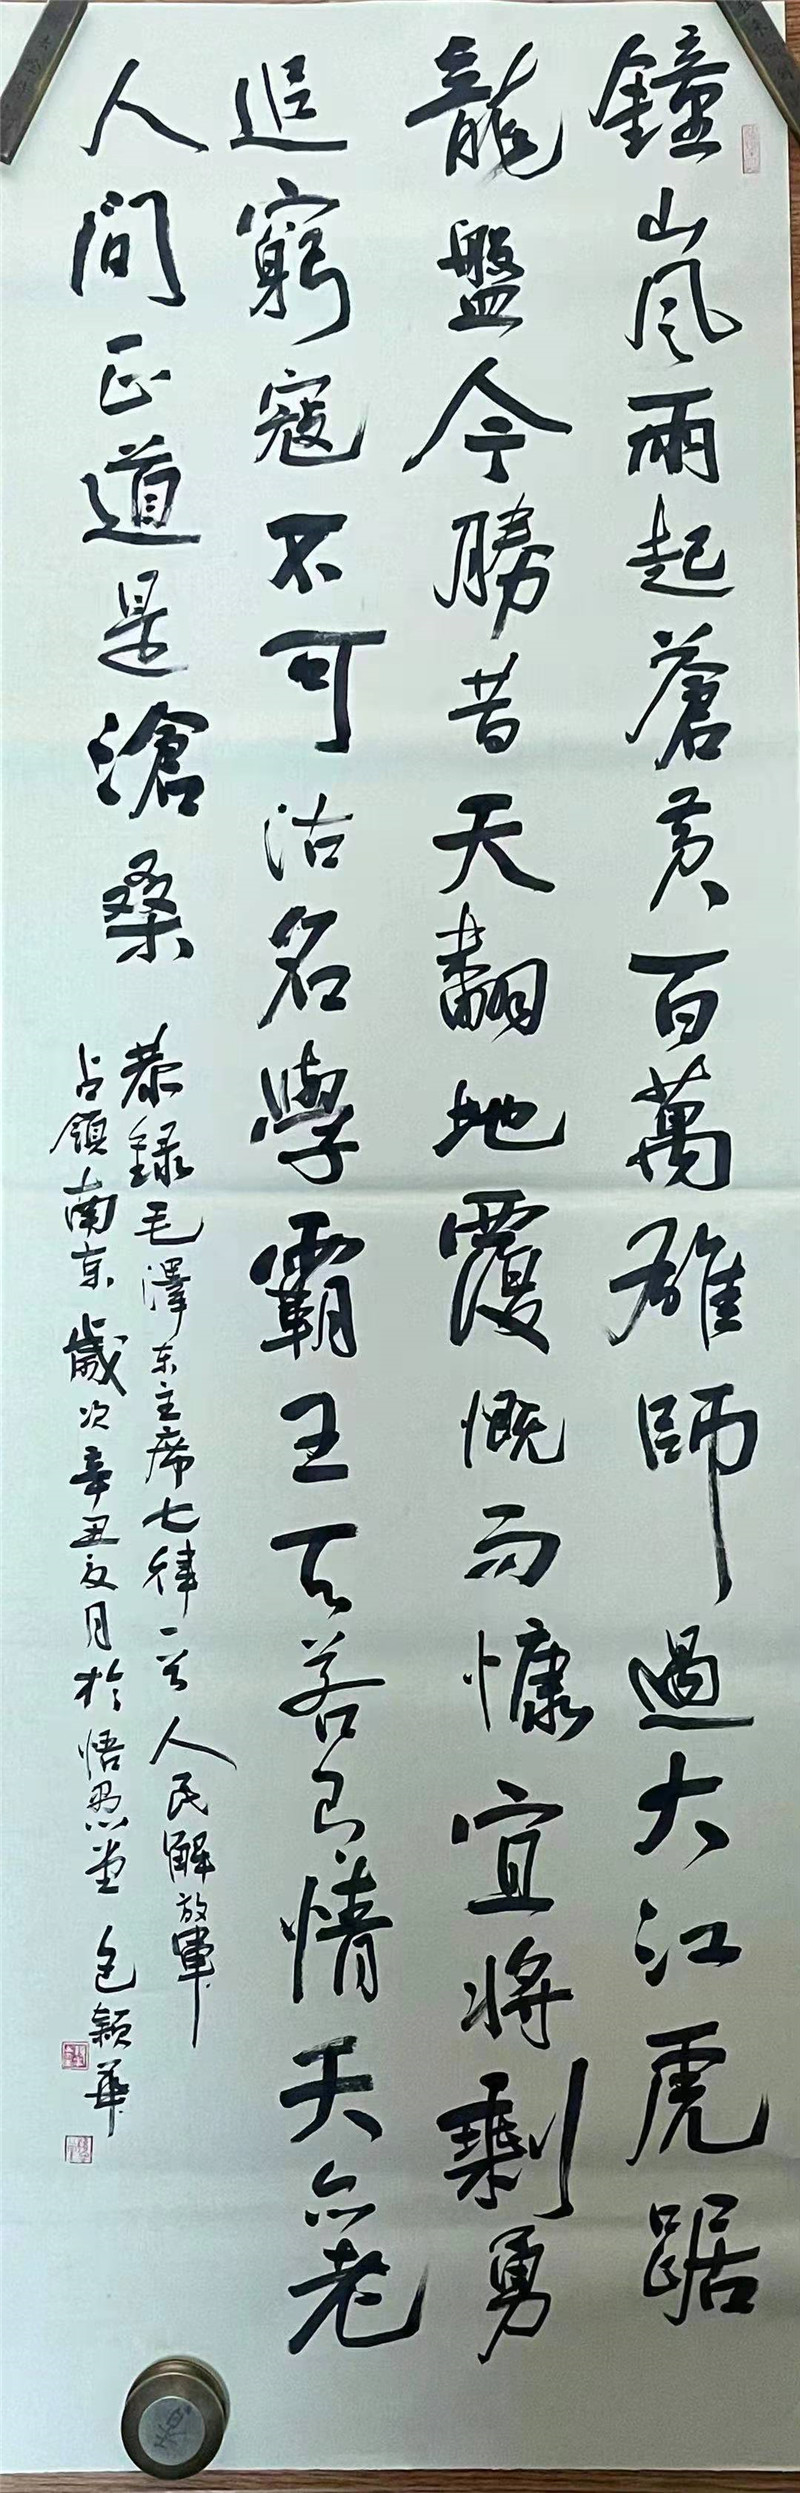 鐘山风雨起蒼黄百萬雄師過大江虎踞
龍盤今勝昔天翻地覆慨而慷宜将剩勇
追窮寇不可沽名學霸王天若有情天亦老
人间正道是滄桑
恭録毛澤东主席七律一首人民解放軍
占領南京歲次辛丑夏月於悟愚堂
包颖華